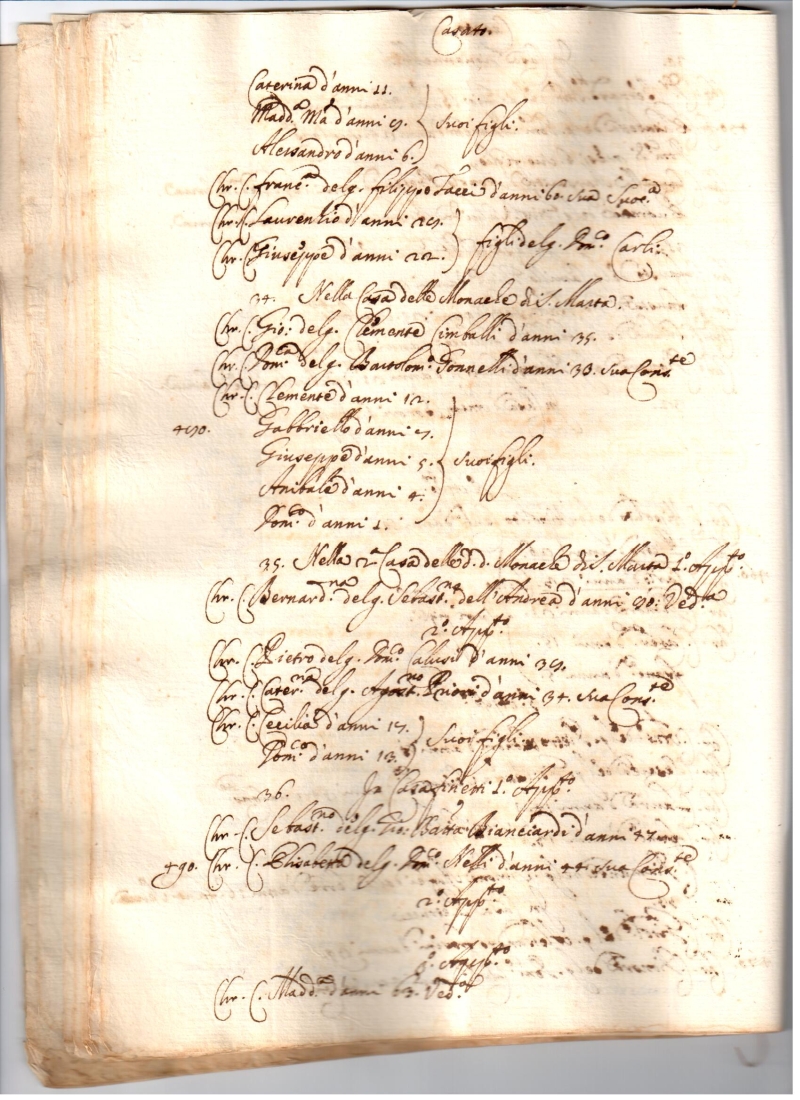 Casato.
Caterina d'anni 11.
Madd.a M.a d'anni 9. suoi figli.
Alessandro d'anni 6.
Chr. C. Franc.a del q. Filippo Tacci d'anni 60 sua Suoc.a
Chr. C. Laurenzio d'anni 29.
Chr. C. Giuseppe d'anni 22. figli del q. Dom.co Carli.
34. Nella Casa delle Monache di S. Marta.
Chr. C. Gio: del q. Clemente Cimballi d'anni 35.
Chr. C. Dom.ca del q. Bartolom.o Tonnelli d'anni 33. sua Cons.te
Chr. C. Clemente d'anni 12.
Gabbriello d'anni 7.
Giuseppe d'anni 5. suoi figli.
Anibale d'anni 4.
Dom.co d'anni 1.
35. Nella 2.a Casa delle d.d. Monache di S. Marta 1.o App.to
Chr. C. Bernard.na del q. Sebast.no dell'Andrea d'anni 50: Ved.a
2.o App.to
Chr. C. Pietro del q. Dom.co d'anni 39.
Chr. C. Cater.na del q. Agost.no d'anni 34. sua Cons.te
Chr. C. Cecilia d'anni 17. suoi figli.
Dom.co d'anni 13.
36. In Casa Finetti 1.o App.to
Chr. C. Sebast.no del q. Gio: Batta Bianciardi d'anni 47.
490. Chr. C. Elisabetta del q. Dom.co Nelli d'anni 44. sua Cons.te
2.o App.to
3.o App.to
Chr. C. Madd.a d'anni 63. Ved.a